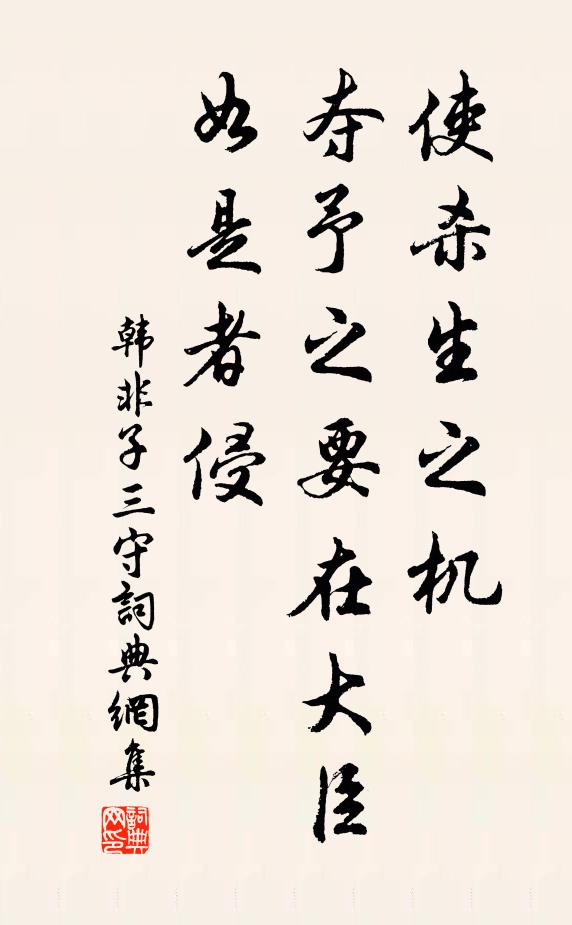 使杀生之机
夺予之要在大臣
如是者侵
韩非子三守詞典網集
詞典
网印